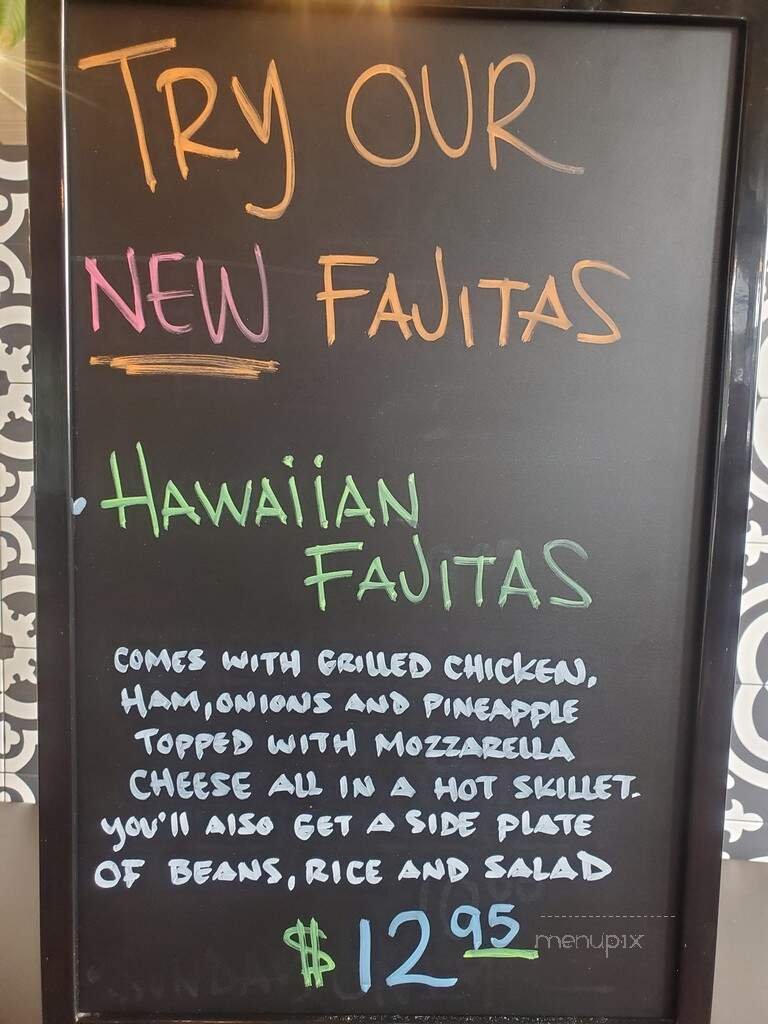 TRY OUR
NEW FAJITAS
HAWAIIAN
FAJITAS
COMES WITH GRILLED CHICKEN,
HAM, ONIONS AND PINEAPPLE
TOPPED WITH MOZZARELLA
CHEESE ALL IN A HOT SKILLET.
YOU'll AlSO GET A SIDE PlATE
OF BEANS, RICE AND SALAD
$12.95
menupix